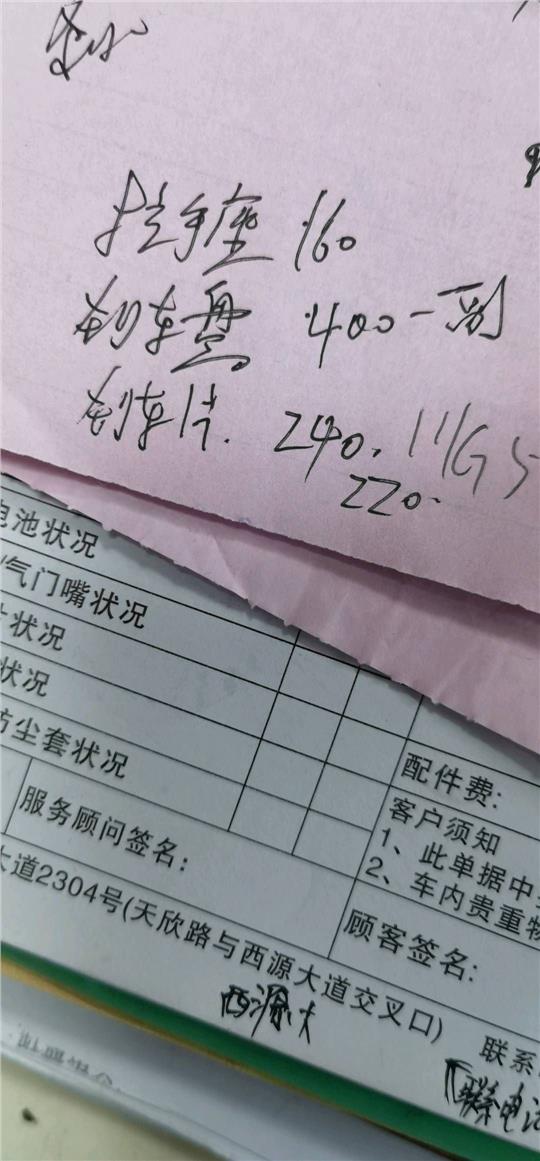 拉手座 160
刹车盘 400一副
刹车片. 240. MG5
220.
电池状况
/气门嘴状况
片状况
状况
防尘套状况
配件费:
服务顾问签名:
客户须知
1、此单据中
2、车内贵重物
顾客签名:
大道2304号(天欣路与西源大道交叉口) 联系
西源大
联系电话